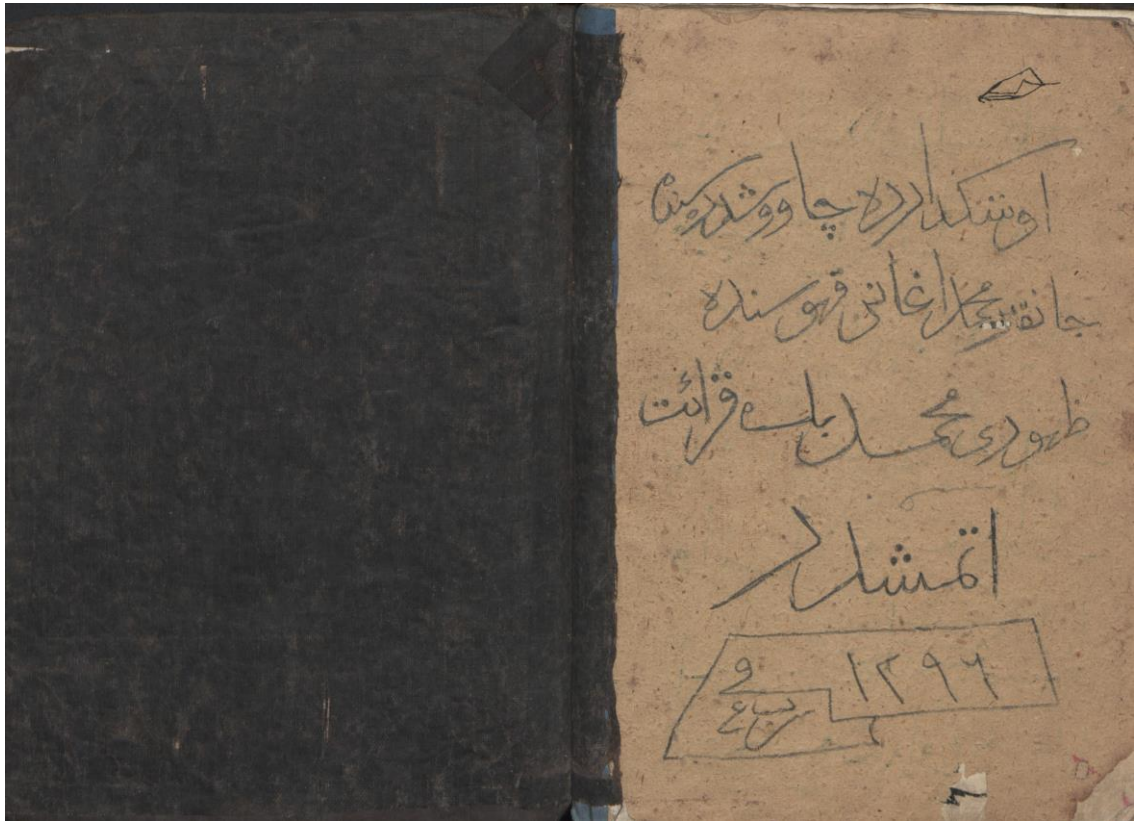 اوسكدارده چاووشدره سنده
جانفدا محمد اغانڭ قهوه سنده
ظهوری محمد بك قرائت
اتمشدر
١٢٩٦
فى